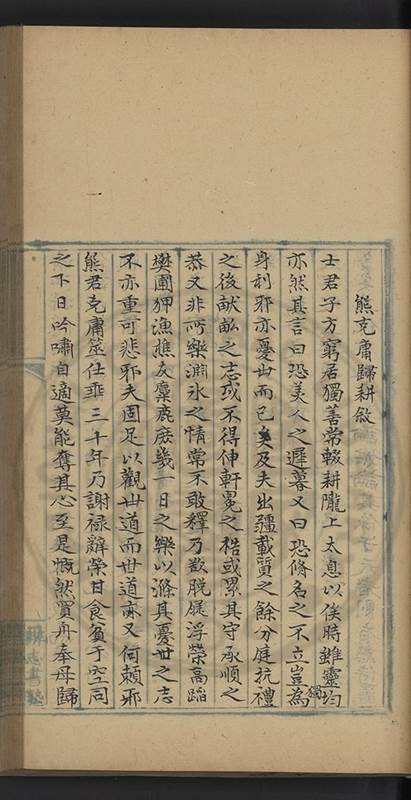 熊克庸歸耕敘
士君子方窮居獨善常輟耕隴上太息以俟時雖靈均
亦然其言曰恐美人之遲暮又曰恐脩名之不立豈為獨
身利邪亦憂世而已矣及夫出疆載質之餘分庭抗禮
之後献畝之志或不得伸軒冕之榰或累其守承順之
恭又非所樂淵冰之情常不敢釋乃歎脫屣浮榮高蹈
樊圃狎漁樵友麋鹿庶幾一日之樂以滌其憂世之志
不亦重可悲邪夫固足以觀世道而世道亦又何賴邪
熊君克庸筮仕垂三十年乃謝禄辭榮甘食貧于空同
之下日吟嘯自適莫能奪其心至是慨然買舟奉母歸